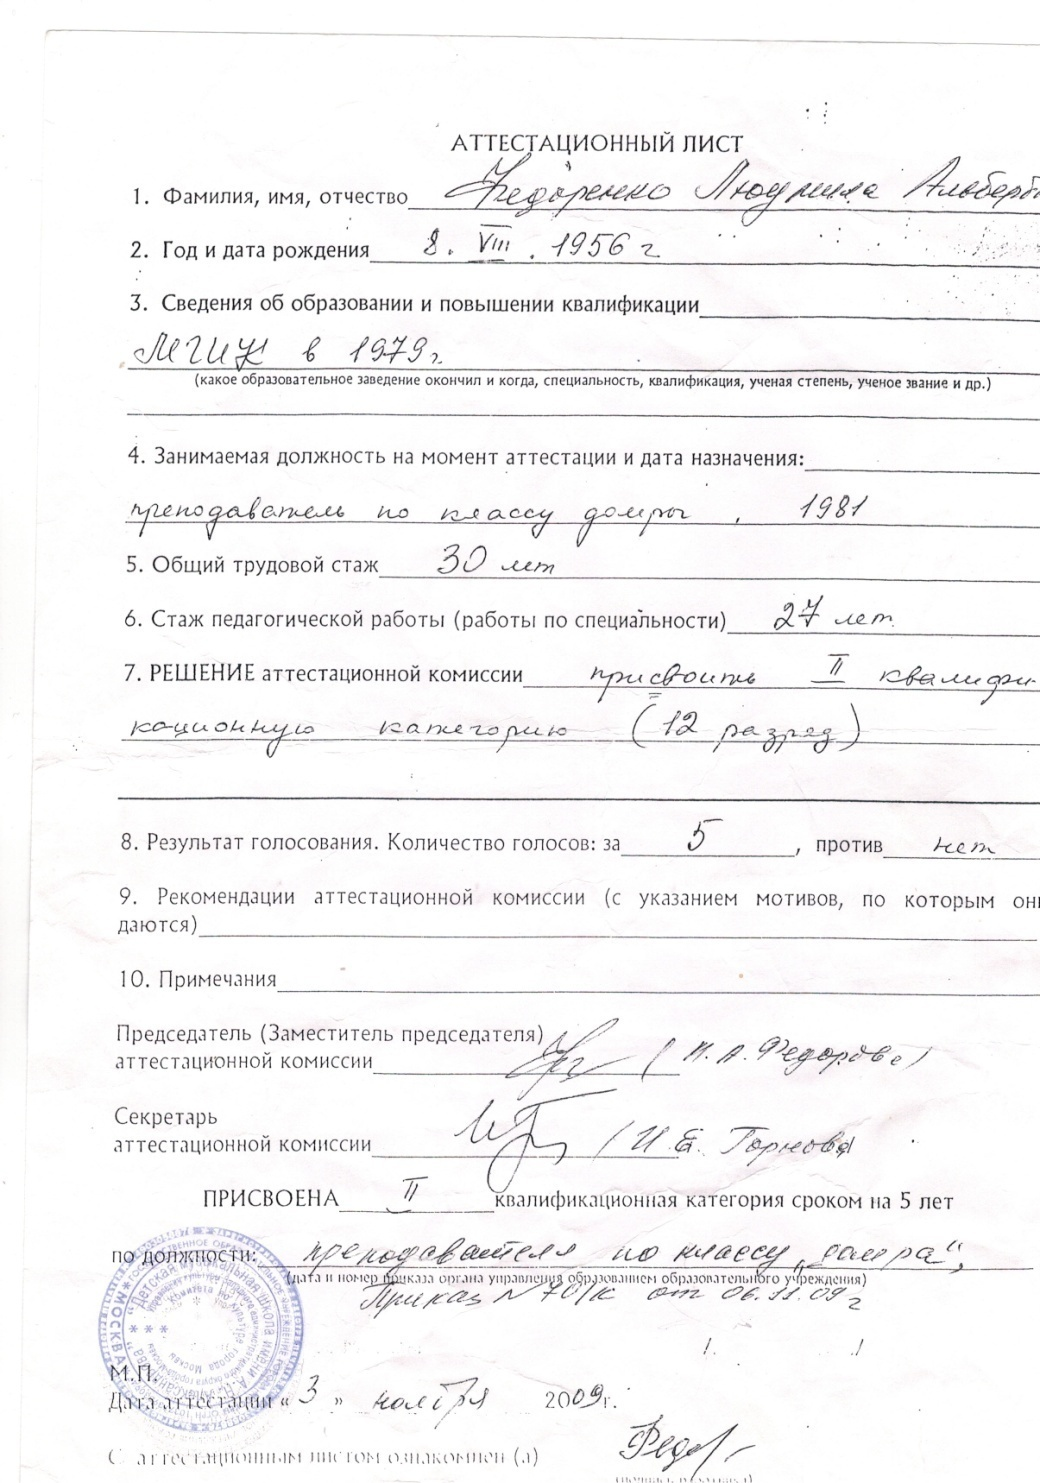 АТТЕСТАЦИОННЫЙ ЛИСТ
1. Фамилия, имя, отчество Федоренко Людмила Альберто
2. Год и дата рождения 8. VIII. 1956 г
3. Сведения об образовании и повышении квалификации
МГИК в 1979 г.
(какое образовательное заведение окончил и когда, специальность, квалификация, ученая степень, ученое звание и др.)
4. Занимаемая должность на момент аттестации и дата назначения:
преподаватель по классу домры, 1981
5. Общий трудовой стаж 30 лет
6. Стаж педагогической работы (работы по специальности) 27 лет
7. РЕШЕНИЕ аттестационной комиссии присвоить II квалифи-
кационную категорию (12 разряд)
8. Результат голосования. Количество голосов: за 5, против нет
9. Рекомендации аттестационной комиссии (с указанием мотивов, по которым они
даются)
10. Примечания
Председатель (Заместитель председателя)
аттестационной комиссии (Н. А. Федорова)
Секретарь
аттестационной комиссии (И. Е. Горнова)
ПРИСВОЕНА II квалификационная категория сроком на 5 лет
по должности: преподавателя по классу „домра“,
(дата и номер приказа органа управления образованием образовательного учреждения)
Приказ N 70/к от 06.11.09 г
М.П.
Дата аттестации « 3 » ноября 2009г.
С аттестационным листом ознакомлен (а)